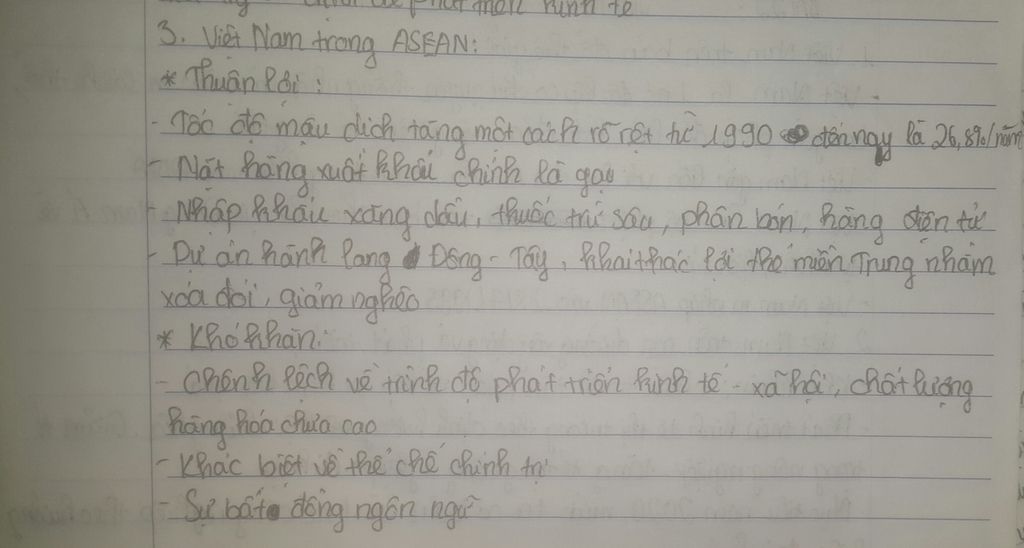 phát triển kinh tế
3. Việt Nam trong ASEAN:
* Thuận lợi:
- Tốc độ mậu dịch tăng một cách rõ rệt từ 1990 đến nay là 26,8%/năm
- Mặt hàng xuất khẩu chính là gạo
- Nhập khẩu xăng dầu, thuốc trừ sâu, phân bón, hàng điện tử
- Dự án hành lang Đông - Tây, khai thác lợi thế miền Trung nhằm
xóa đói, giảm nghèo
* Khó khăn:
- Chênh lệch về trình độ phát triển kinh tế - xã hội, chất lượng
hàng hóa chưa cao
- Khác biệt về thể chế chính trị
- Sự bất đồng ngôn ngữ